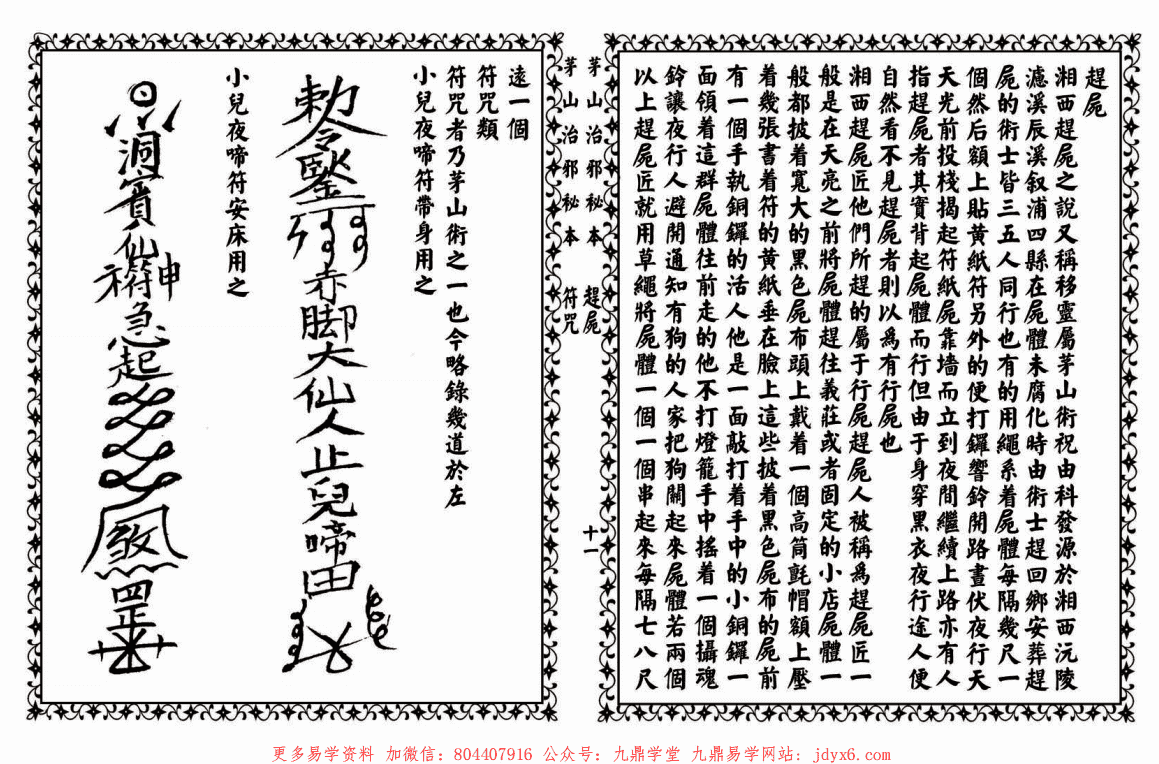 趕屍
湘西趕屍之說又稱移靈屬茅山術祝由科發源於湘西沅陵
瀘溪辰溪叙浦四縣在屍體未腐化時由術士趕回鄉安葬趕
屍的術士皆三五人同行也有的用繩系着屍體每隔幾尺一
個然后額上貼黄紙符另外的便打鑼響鈴開路晝伏夜行天
天光前投棧揭起符紙屍靠墻而立到夜間繼續上路亦有人
指趕屍者其實背起屍體而行但由于身穿黑衣夜行途人便
自然看不見趕屍者則以爲有行屍也
湘西趕屍匠他們所趕的屬于行屍趕屍人被稱爲趕屍匠一
般是在天亮之前將屍體趕往義莊或者固定的小店屍體一
般都披着寬大的黑色屍布頭上戴着一個高筒氈帽額上壓
着幾張書着符的黄紙垂在臉上這些披着黑色屍布的屍前
有一個手執銅鑼的活人他是一面敲打着手中的小銅鑼一
面領着這群屍體往前走的他不打燈籠手中摇着一個攝魂
鈴讓夜行人避開通知有狗的人家把狗關起來屍體若兩個
以上趕屍匠就用草繩將屍體一個一個串起來每隔七八尺
茅山治邪秘本 趕屍
十一
茅山治邪秘本 符咒
遠一個
符咒類
符咒者乃茅山術之一也今略錄幾道於左
小兒夜啼符帶身用之
勅令
赤脚大仙人止兒啼
小兒夜啼符安床用之
洞賓仙符神急起
罡
更多易学资料 加微信：804407916 公众号：九鼎学堂 九鼎易学网站：jdyx6.com